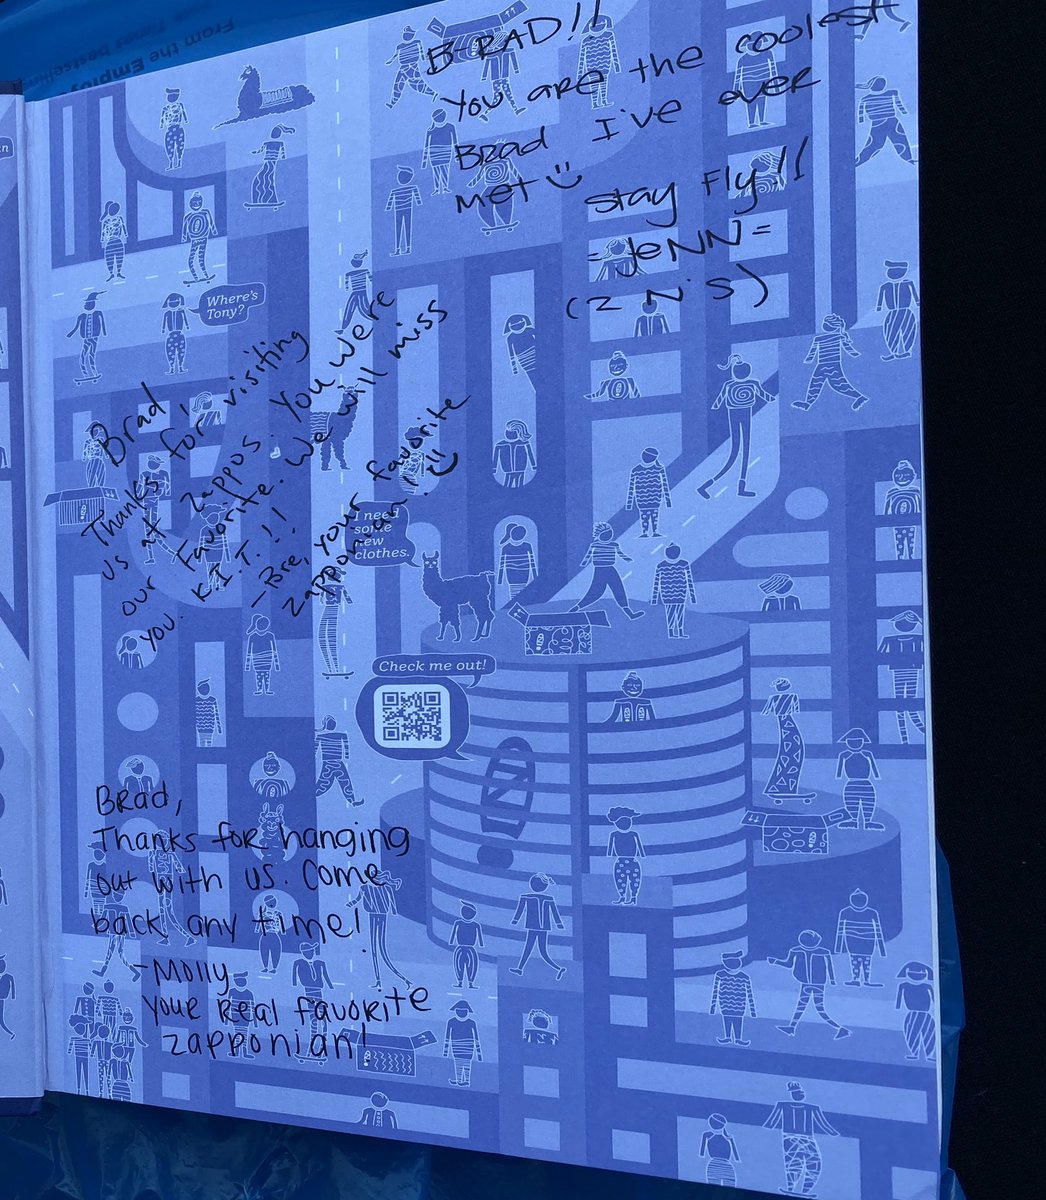 From the Employ
Times bestselli
B-RAD!!
You are the coolest
Brad I've ever
met
Stay Fly!!
=JENN=
(2 N's)
Where's
Tony?
Brad
Thanks for visiting
us at Zappos. You were
our Favorite. We will miss
you. K.I.T.!!
-Bre, your favorite
zapponian!
I need
some
new
clothes.
Check me out!
Brad,
Thanks for hanging
out with us. Come
back any time!
-Molly
your Real favorite
zapponian!